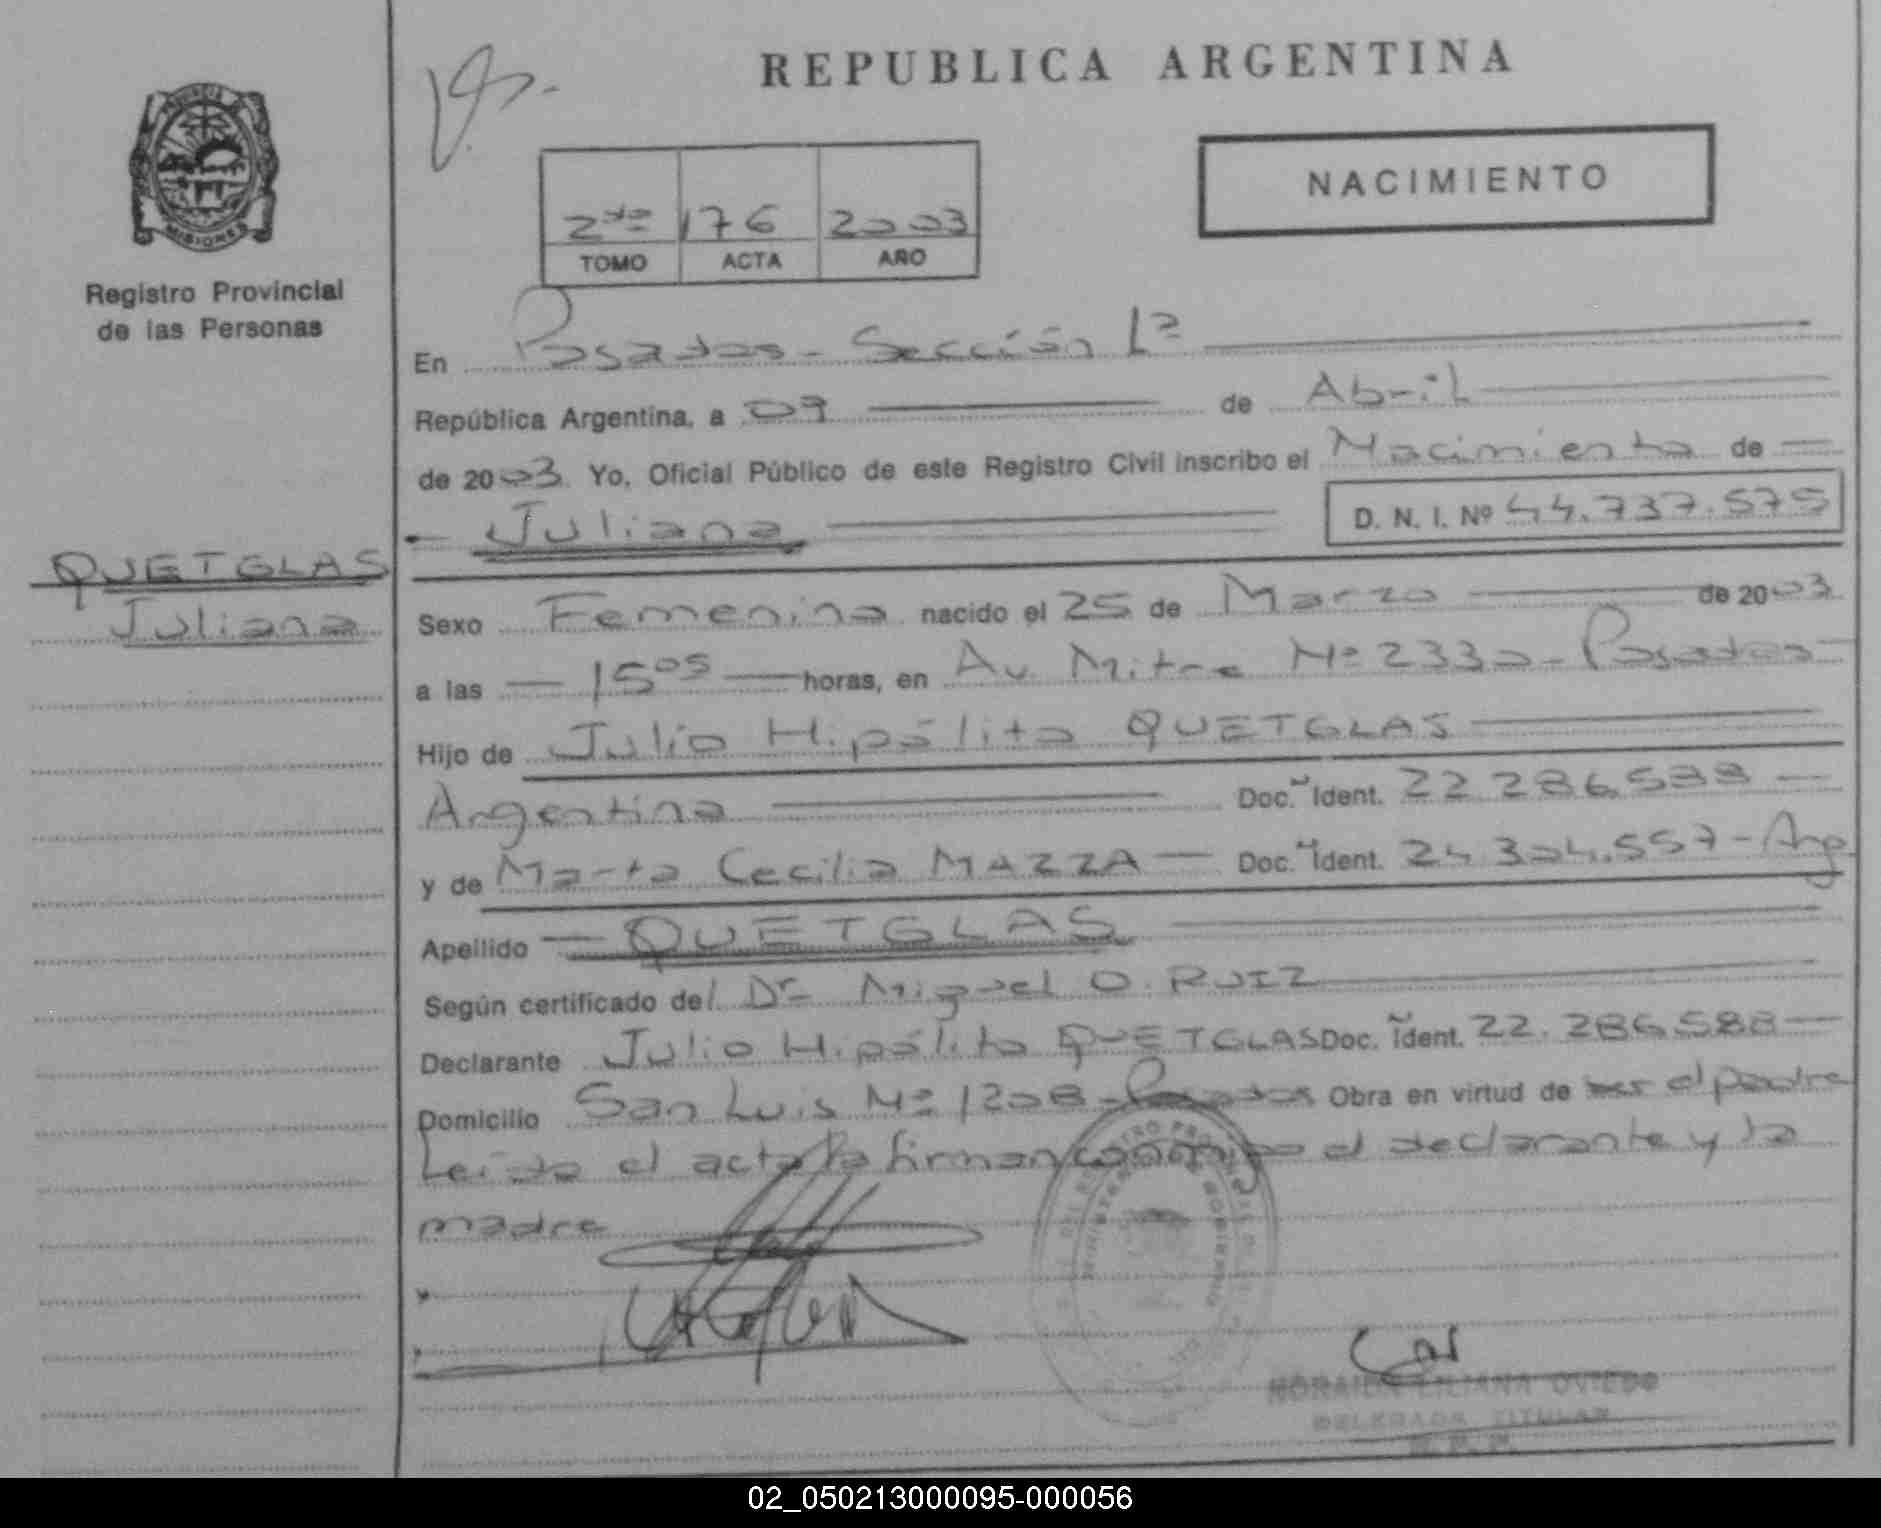 REPUBLICA ARGENTINA
PROVINCIA DE
MISIONES
Registro Provincial
de las Personas
NACIMIENTO
2do 176 2003
TOMO ACTA AÑO
En Posadas - Sección 1ª
República Argentina, a 09 de Abril
de 2003. Yo, Oficial Público de este Registro Civil inscribo el Nacimiento de
Juliana D. N. I. Nº 44.737.575
QUETGLAS
Juliana
Sexo Femenino nacido el 25 de Marzo de 2003
a las 15 05 horas, en Av. Mitre Nº 2330 - Posadas
Hijo de Julio Hipólito QUETGLAS
Argentino Doc. Ident. 22.286.588
y de Marta Cecilia MAZZA Doc. Ident. 24.304.557 - Arg
Apellido QUETGLAS
Según certificado del Dr. Miguel O. RUIZ
Declarante Julio Hipólito QUETGLAS Doc. Ident. 22.286.588
Domicilio San Luis Nº 1208 - Posadas Obra en virtud de ser el padre
Leída el acta la firman conmigo el declarante y la
madre
LILIANA OVIEDO
DELEGADA TITULAR
R. P. P.
02_050213000095-000056